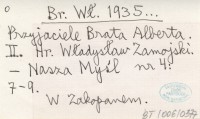 Br. Wł. 1935...
Przyjaciele Brata Alberta.
II. Hr. Władysław Zamojski
— Nasza Myśl nr 4.
7-9.
W Zakopanem.